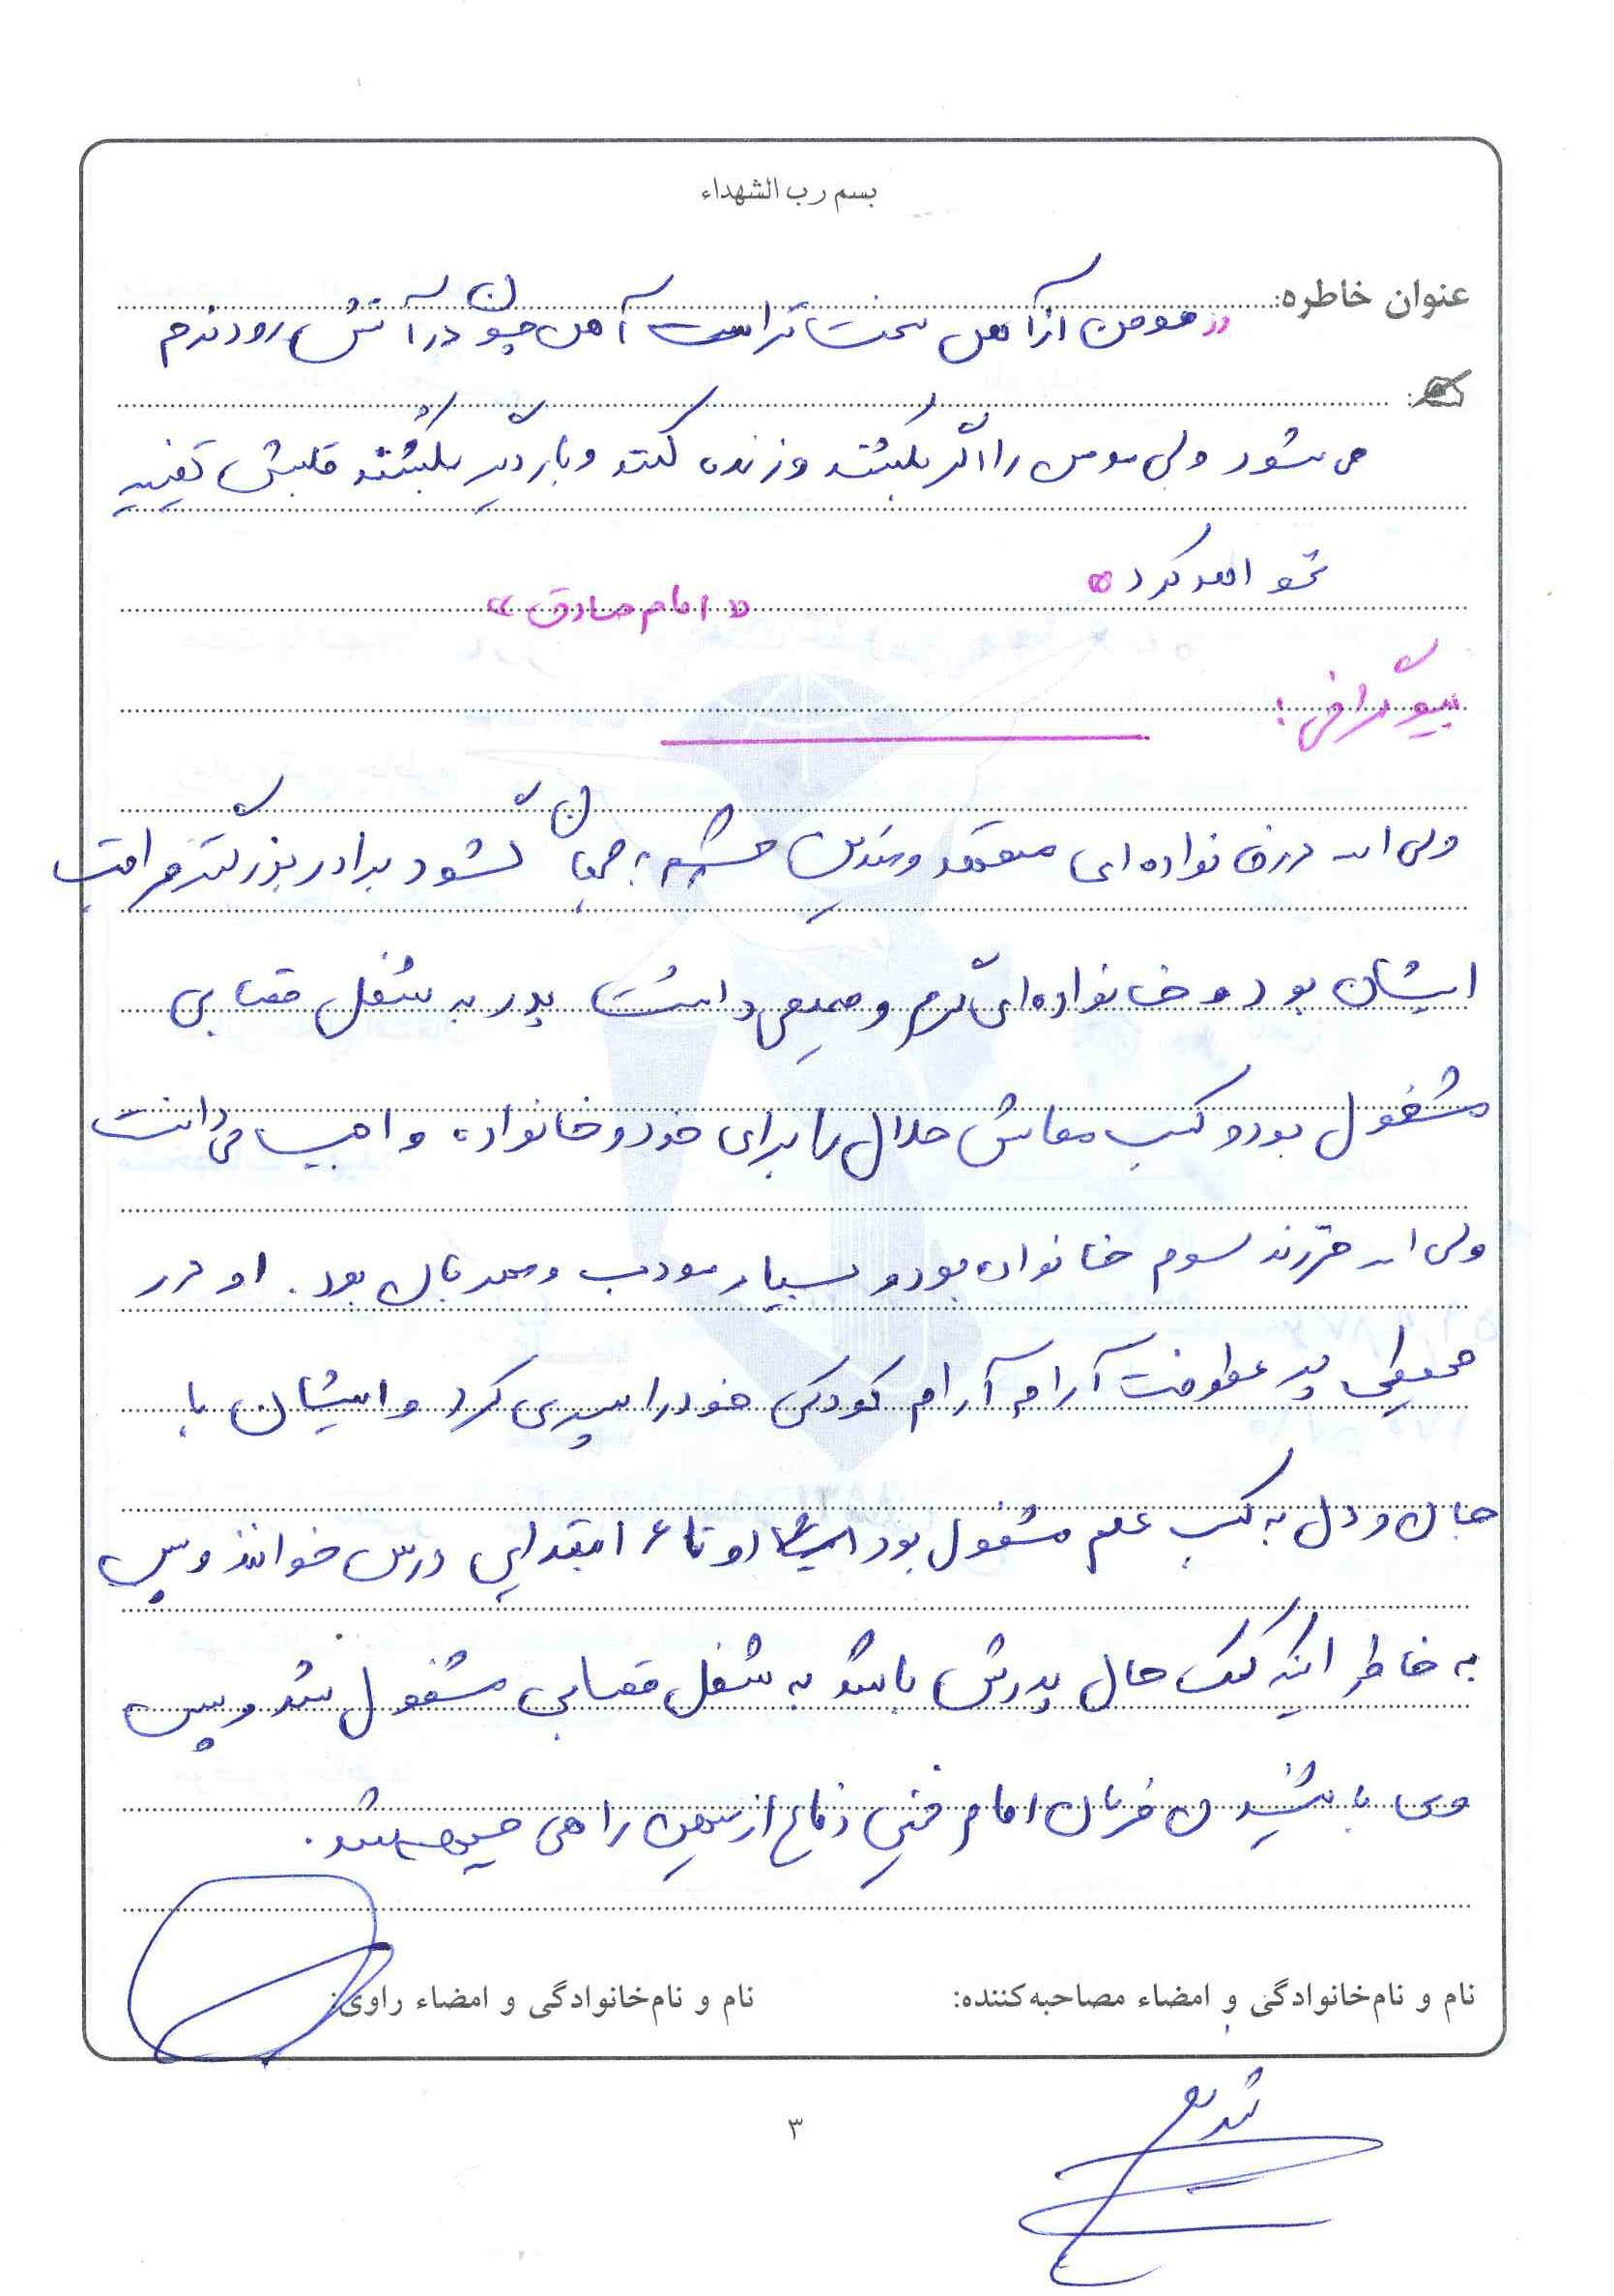 بسم رب الشهداء
عنوان خاطره:
«مومن از آهن سخت تر است آهن چون در آتش رود نرم
می شود ولی مومن را اگر بکشند و زنده کنند و بار دیگر بکشند قلبش تغییر
نخواهد کرد»
«امام صادق»
بیوگرافی:
ولی اله در خانواده ای معتقد و متدین چشم به جهان گشود برادر بزرگترم
ایشان بود و خانواده ای گرم و صمیمی داشت پدر به شغل قصابی
مشغول بود و کسب معاش حلال را برای خود و خانواده واجب می دانست
ولی اله فرزند سوم خانواده بود و بسیار مودب و مهربان بود. او در
محیطی پر عطوفت آرام آرام کودکی خود را سپری کرد و ایشان با
جان و دل به کسب علم مشغول بود او تا ۶ ابتدایی درس خواند و پس
به خاطر اینکه کمک حال پدرش باشد به شغل قصابی مشغول شد و سپس
وی با شنیدن فرمان امام خمینی دفاع از میهن راهی جبهه شد.
نام و نام‌خانوادگی و امضاء مصاحبه‌کننده:
نام و نام‌خانوادگی و امضاء راوی:
۳